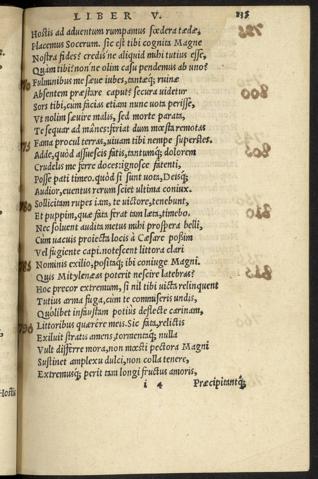 LIBER V.
Hostis ad aduentum rumpamus fœdera tædæ,
Placemus Socerum. sic est tibi cognita Magne
Nostra fides? credis'ne aliquid mihi tutius esse,
Quàm tibi? non'ne olim casu pendemus ab uno?
Fulminibus me sæue iubes, tantæq; ruinæ
Absentem præstare caput? secura uidetur
Sors tibi, cum facias etiam nunc uota perisse,
Vt nolim seruire malis, sed morte parata,
Te sequar ad mânes: feriat dum mœsta remotas
Fama procul terras, uiuam tibi nempe superstes.
Adde, quòd assuescis fatis, tantumq; dolorem
Crudelis me ferre doces: ignosce fatenti,
Posse pati timeo. quòd si sunt uota, Deisq;
Audior, euentus rerum sciet ultima coniux.
Sollicitam rupes iam, te uictore, tenebunt,
Et puppim, quæ fata ferat tam læta, timebo.
Nec soluent audita metus mihi prospera belli,
Cùm uacuis proiecta locis à Cæsare possim
Vel fugiente capi. notescent littora clari
Nominis exilio, positaq; ibi coniuge Magni.
Quis Mitylenæas poterit nescire latebras?
Hoc precor extremum, si nil tibi uicta relinquent
Tutius arma fuga, cùm te commiseris undis,
Quòlibet infaustam potiùs deflecte carinam,
Littoribus quærère meis. Sic fata, relictis
Exiluit stratis amens, tormentaq; nulla
Vult differre mora, non mœsti pectora Magni
Sustinet amplexu dulci, non colla tenere,
Extremusq; perit tam longi fructus amoris,
i 4 Præcipitantq;
Hostis